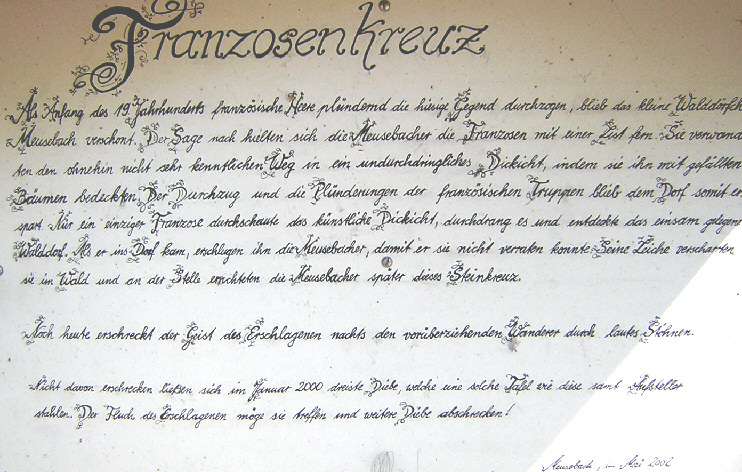 Franzosenkreuz
Als Anfang des 19. Jahrhunderts französische Heere plündernd die hiesige Gegend durchzogen, blieb das kleine
Meusebach verschont. Der Sage nach hielten sich die Meusebacher die Franzosen mit einer List fern. Sie verwand
ten den ohnehin nicht sehr kenntlichen Weg in ein undurchdringliches Dickicht, indem sie ihn mit gefällten
Bäumen bedeckten. Der Durchzug und die Plünderungen der französischen Truppen blieb dem Dorf somit er
spart. Nur ein einziger Franzose durchschaute das künstliche Dickicht, durchdrang es und entdeckte das einsam gelegene
Walddorf. Als er ins Dorf kam, erschlugen ihn die Meusebacher, damit er sie nicht verraten konnte. Seine Leiche verscharrten
sie im Wald und an der Stelle errichteten die Meusebacher später dieses Steinkreuz.
Noch heute erschreckt der Geist des Erschlagenen nachts den vorüberziehenden Wanderer durch lautes Stöhnen.
Nicht davon erschrecken ließen sich im Januar 2000 dreiste Diebe, welche eine solche Tafel wie diese samt Aufsteller
stahlen. Der Fluch des Erschlagenen möge sie treffen und weitere Diebe abschrecken!
Meusebach, im Mai 2002